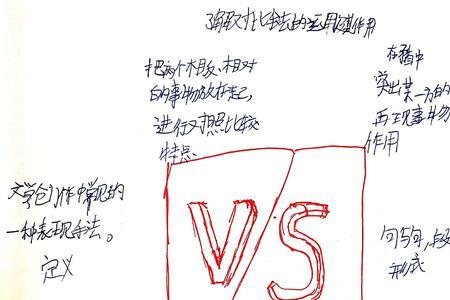 对比手法的运用及其作用
把两个相反、相对
的事物放在一起,
进行对照比较
特点
突出某一方的
再现事物
作用
文学创作中常见的
一种表现手法。
定义
VS
句与句,
形式